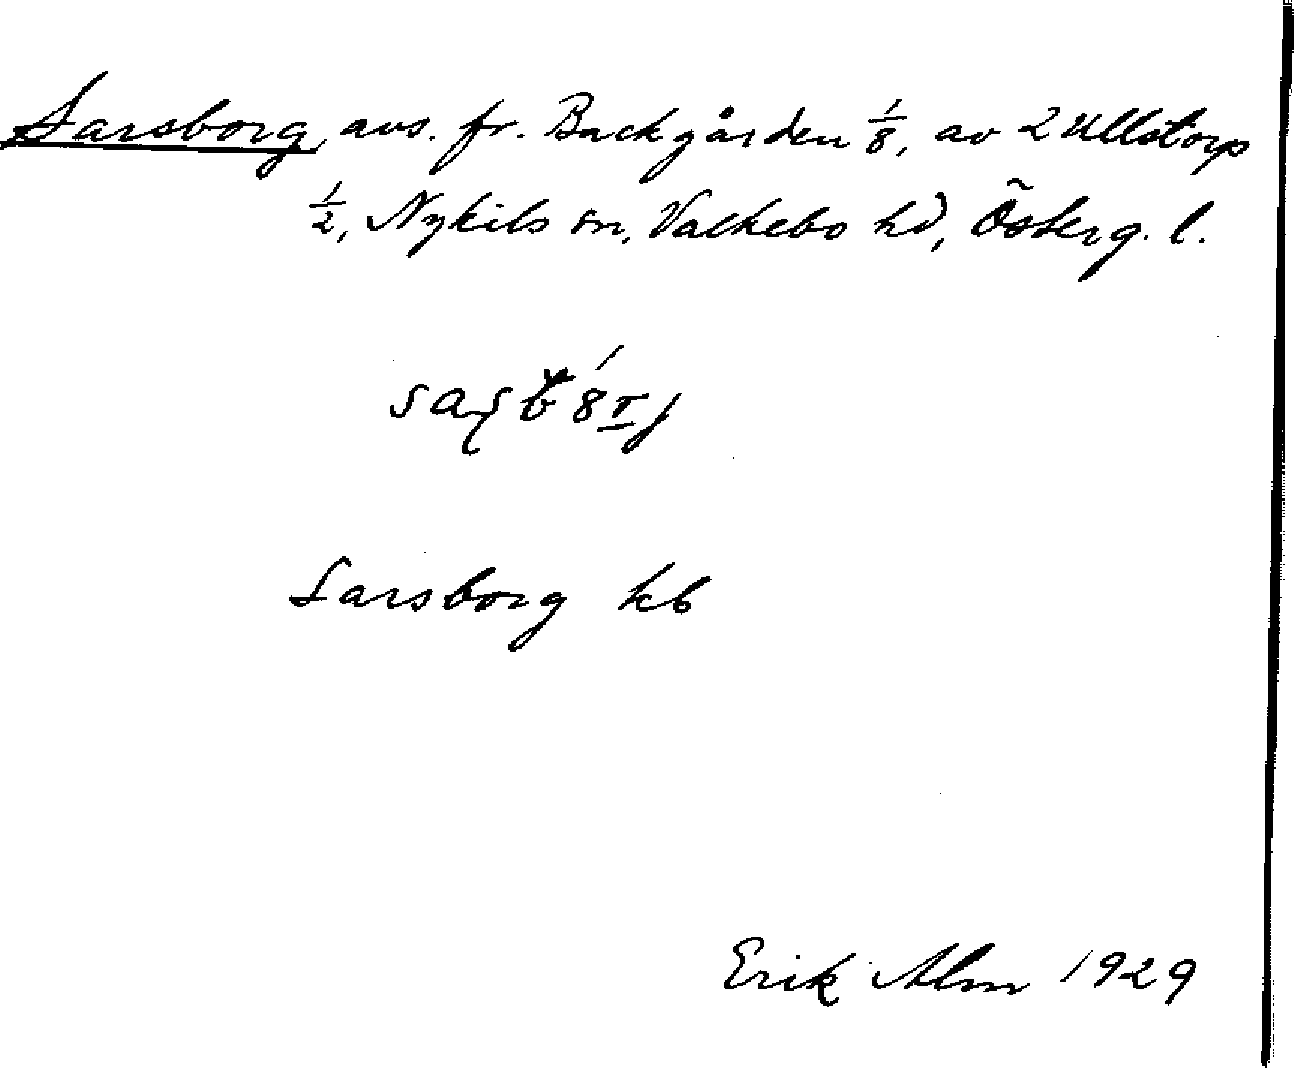 Larsborg, avs. fr. Backgården 1/8, av 2 Ullstorp
1/2, Nykils sn, Valkebo hd, Österg. l.
Larsborg kb
Erik Alm 1929